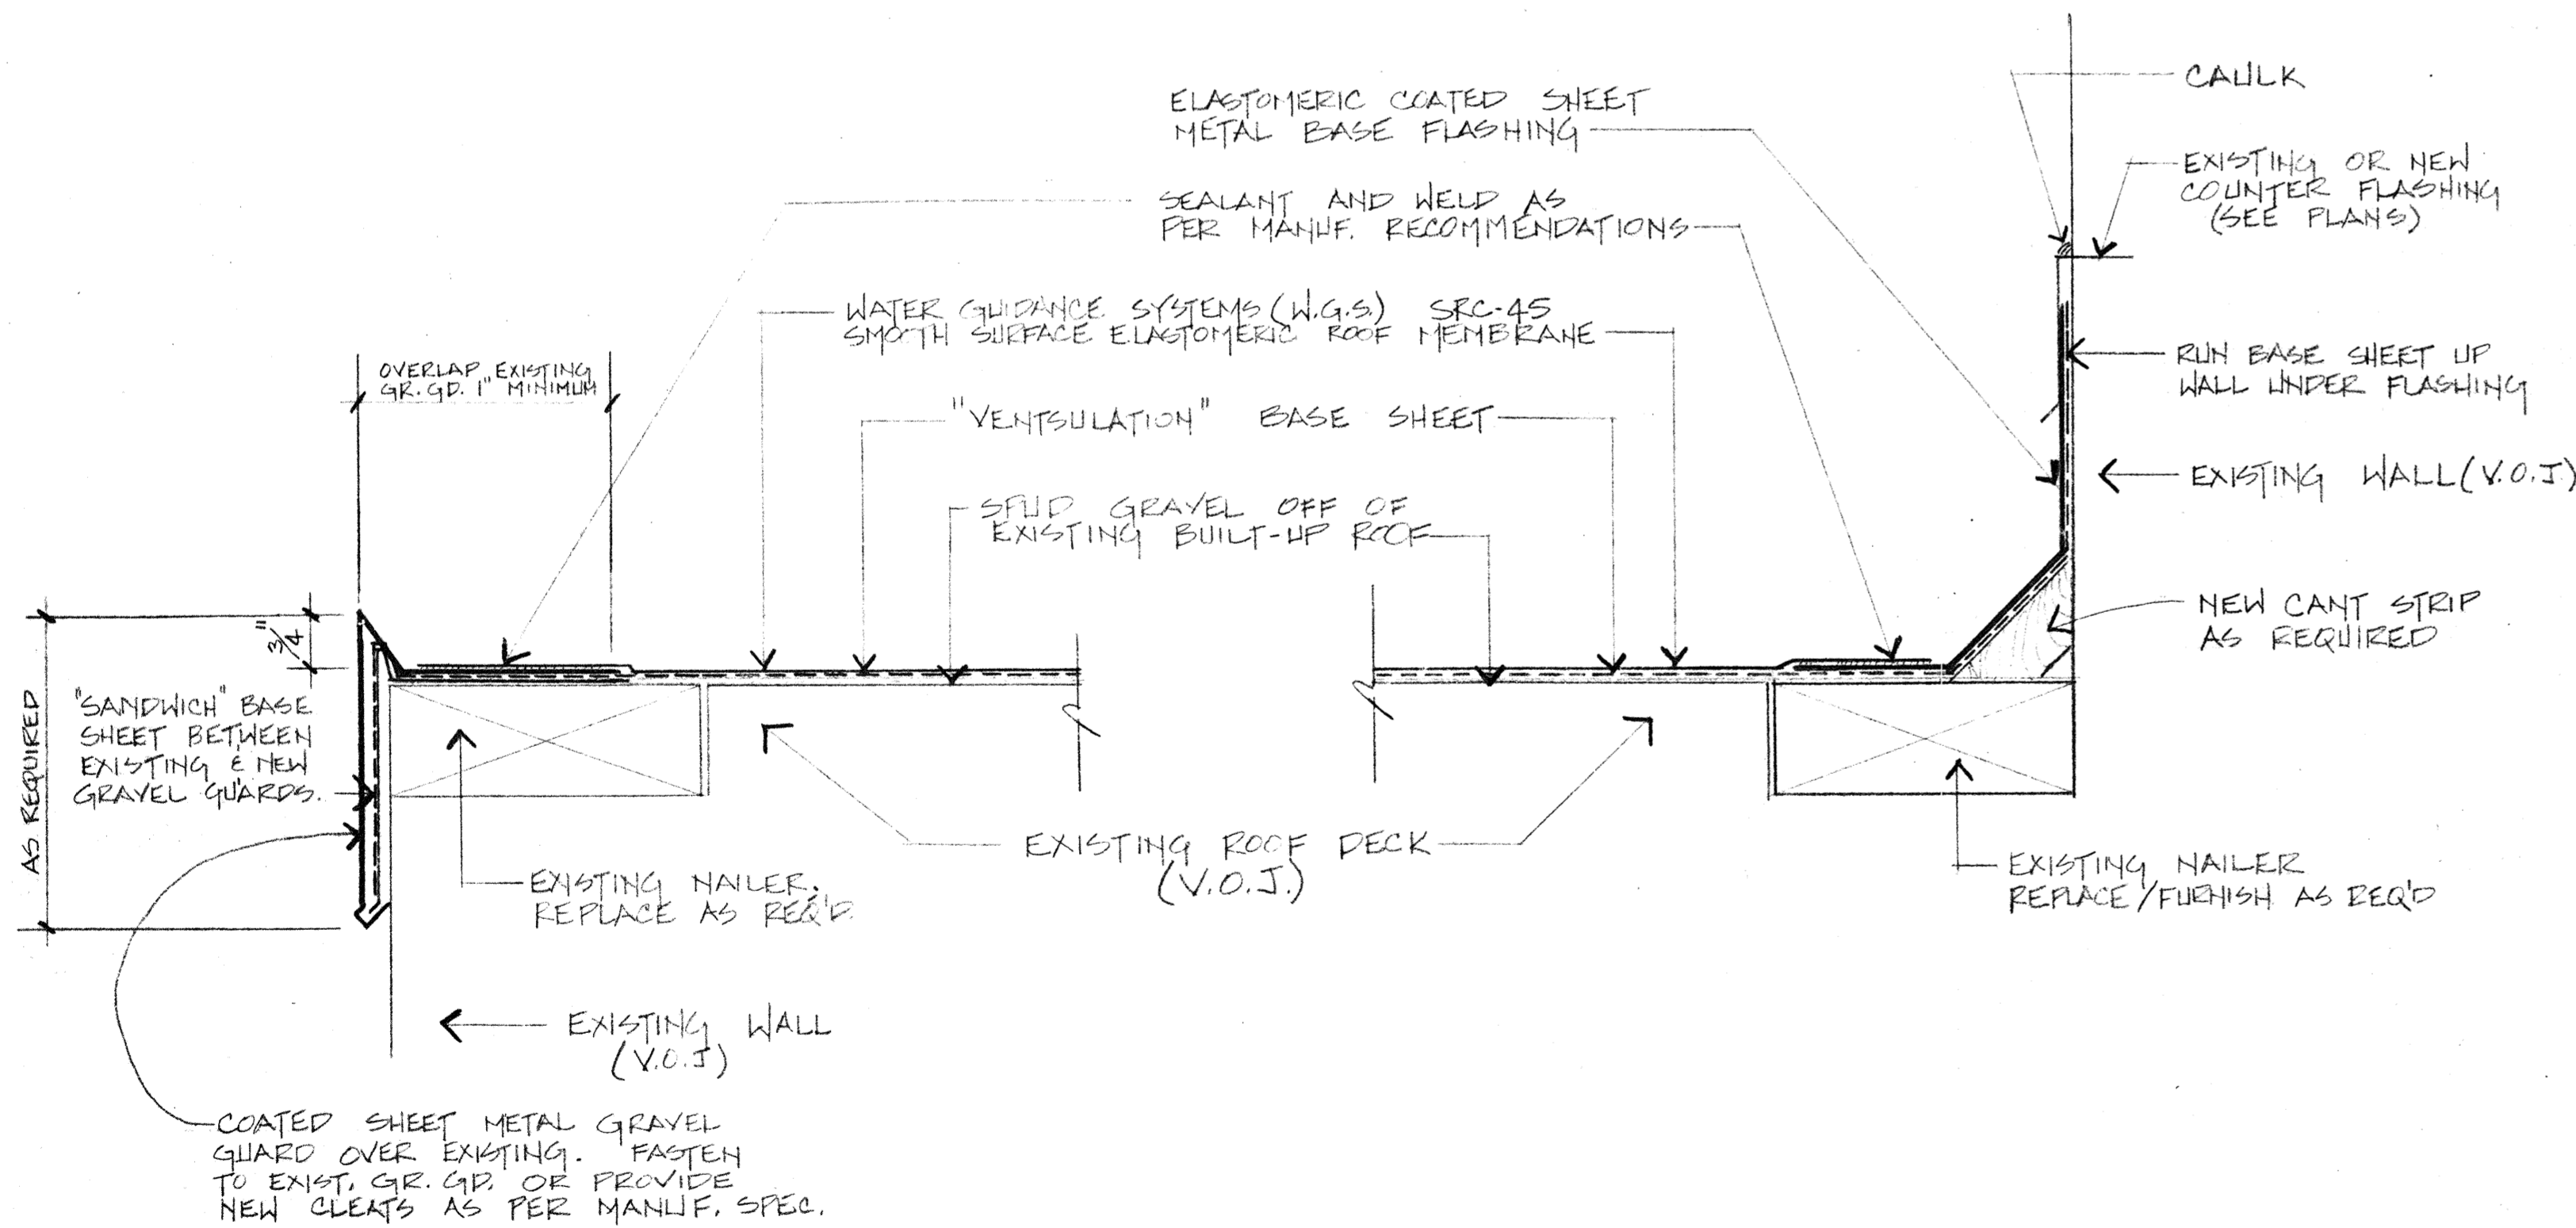 CAULK
ELASTOMERIC COATED SHEET
METAL BASE FLASHING
EXISTING OR NEW
COUNTER FLASHING
(SEE PLANS)
SEALANT AND WELD AS
PER MANUF. RECOMMENDATIONS
WATER GUIDANCE SYSTEMS (W.G.S.) SRC-45
SMOOTH SURFACE ELASTOMERIC ROOF MEMBRANE
RUN BASE SHEET UP
WALL UNDER FLASHING
OVERLAP EXISTING
GR. GD. 1" MINIMUM
"VENTSULATION" BASE SHEET
EXISTING WALL (V.O.J.)
SPUD GRAVEL OFF OF
EXISTING BUILT-UP ROOF
NEW CANT STRIP
AS REQUIRED
3/4"
AS REQUIRED
"SANDWICH" BASE
SHEET BETWEEN
EXISTING & NEW
GRAVEL GUARDS.
EXISTING ROOF DECK
(V.O.J.)
EXISTING NAILER.
REPLACE AS REQ'D.
EXISTING NAILER
REPLACE/FURNISH AS REQ'D
EXISTING WALL
(V.O.J)
COATED SHEET METAL GRAVEL
GUARD OVER EXISTING. FASTEN
TO EXIST. GR. GD. OR PROVIDE
NEW CLEATS AS PER MANUF. SPEC.